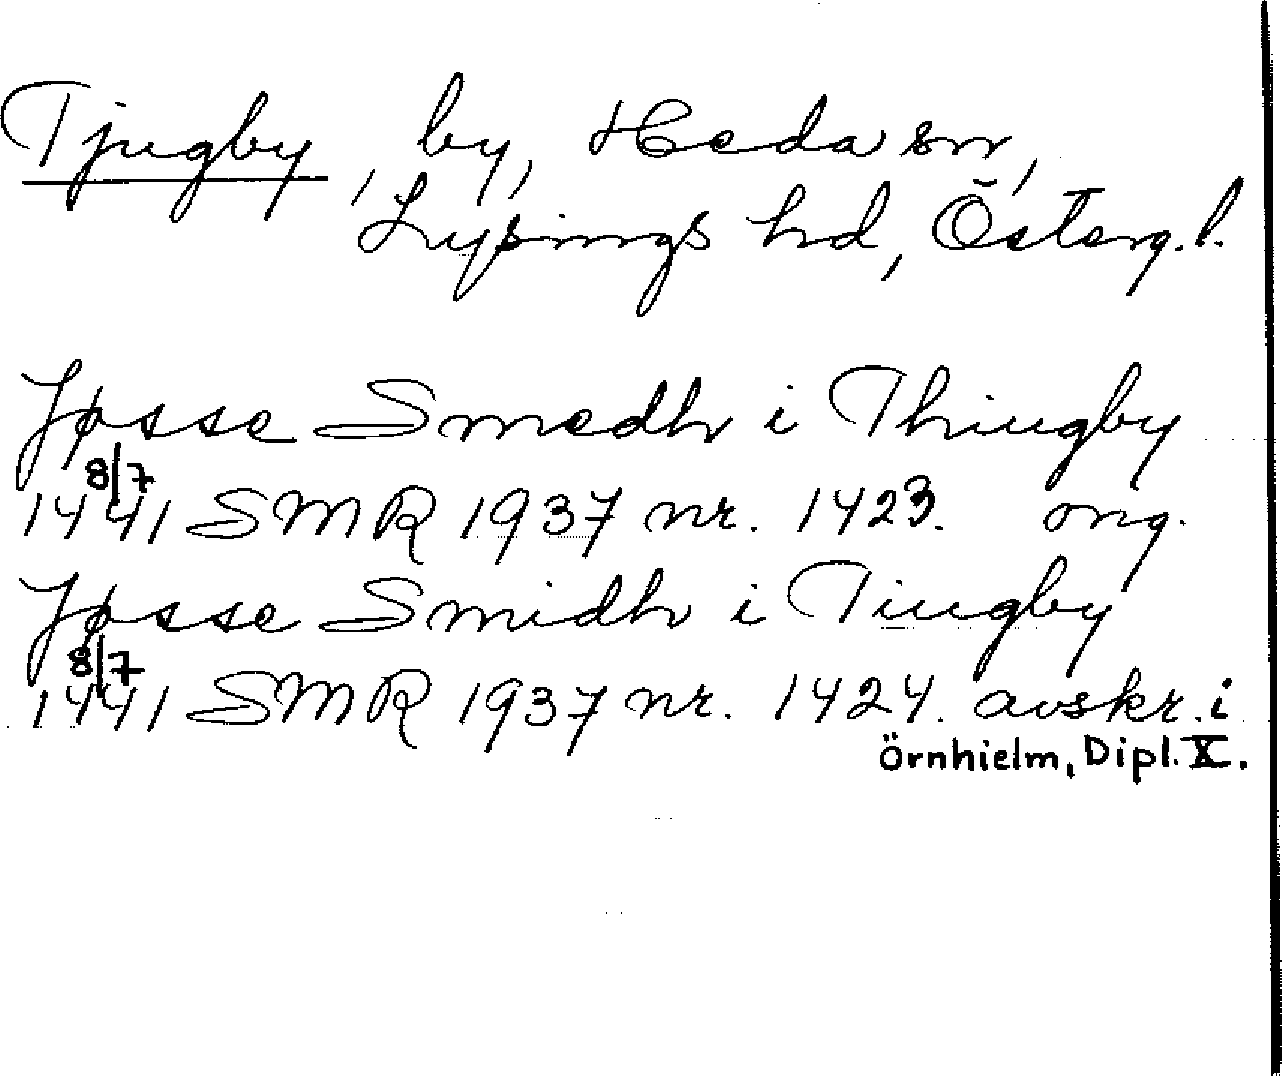 Tjugby, by, Heda sn,
Lysings hd, Österg.l.
Jøsse Smedh i Thiugby
8/7
1441 SMR 1937 nr. 1423. orig.
Jøsse Smidh i Tiugby
8/7
1441 SMR 1937 nr. 1424. avskr. i
Örnhielm, Dipl. X.